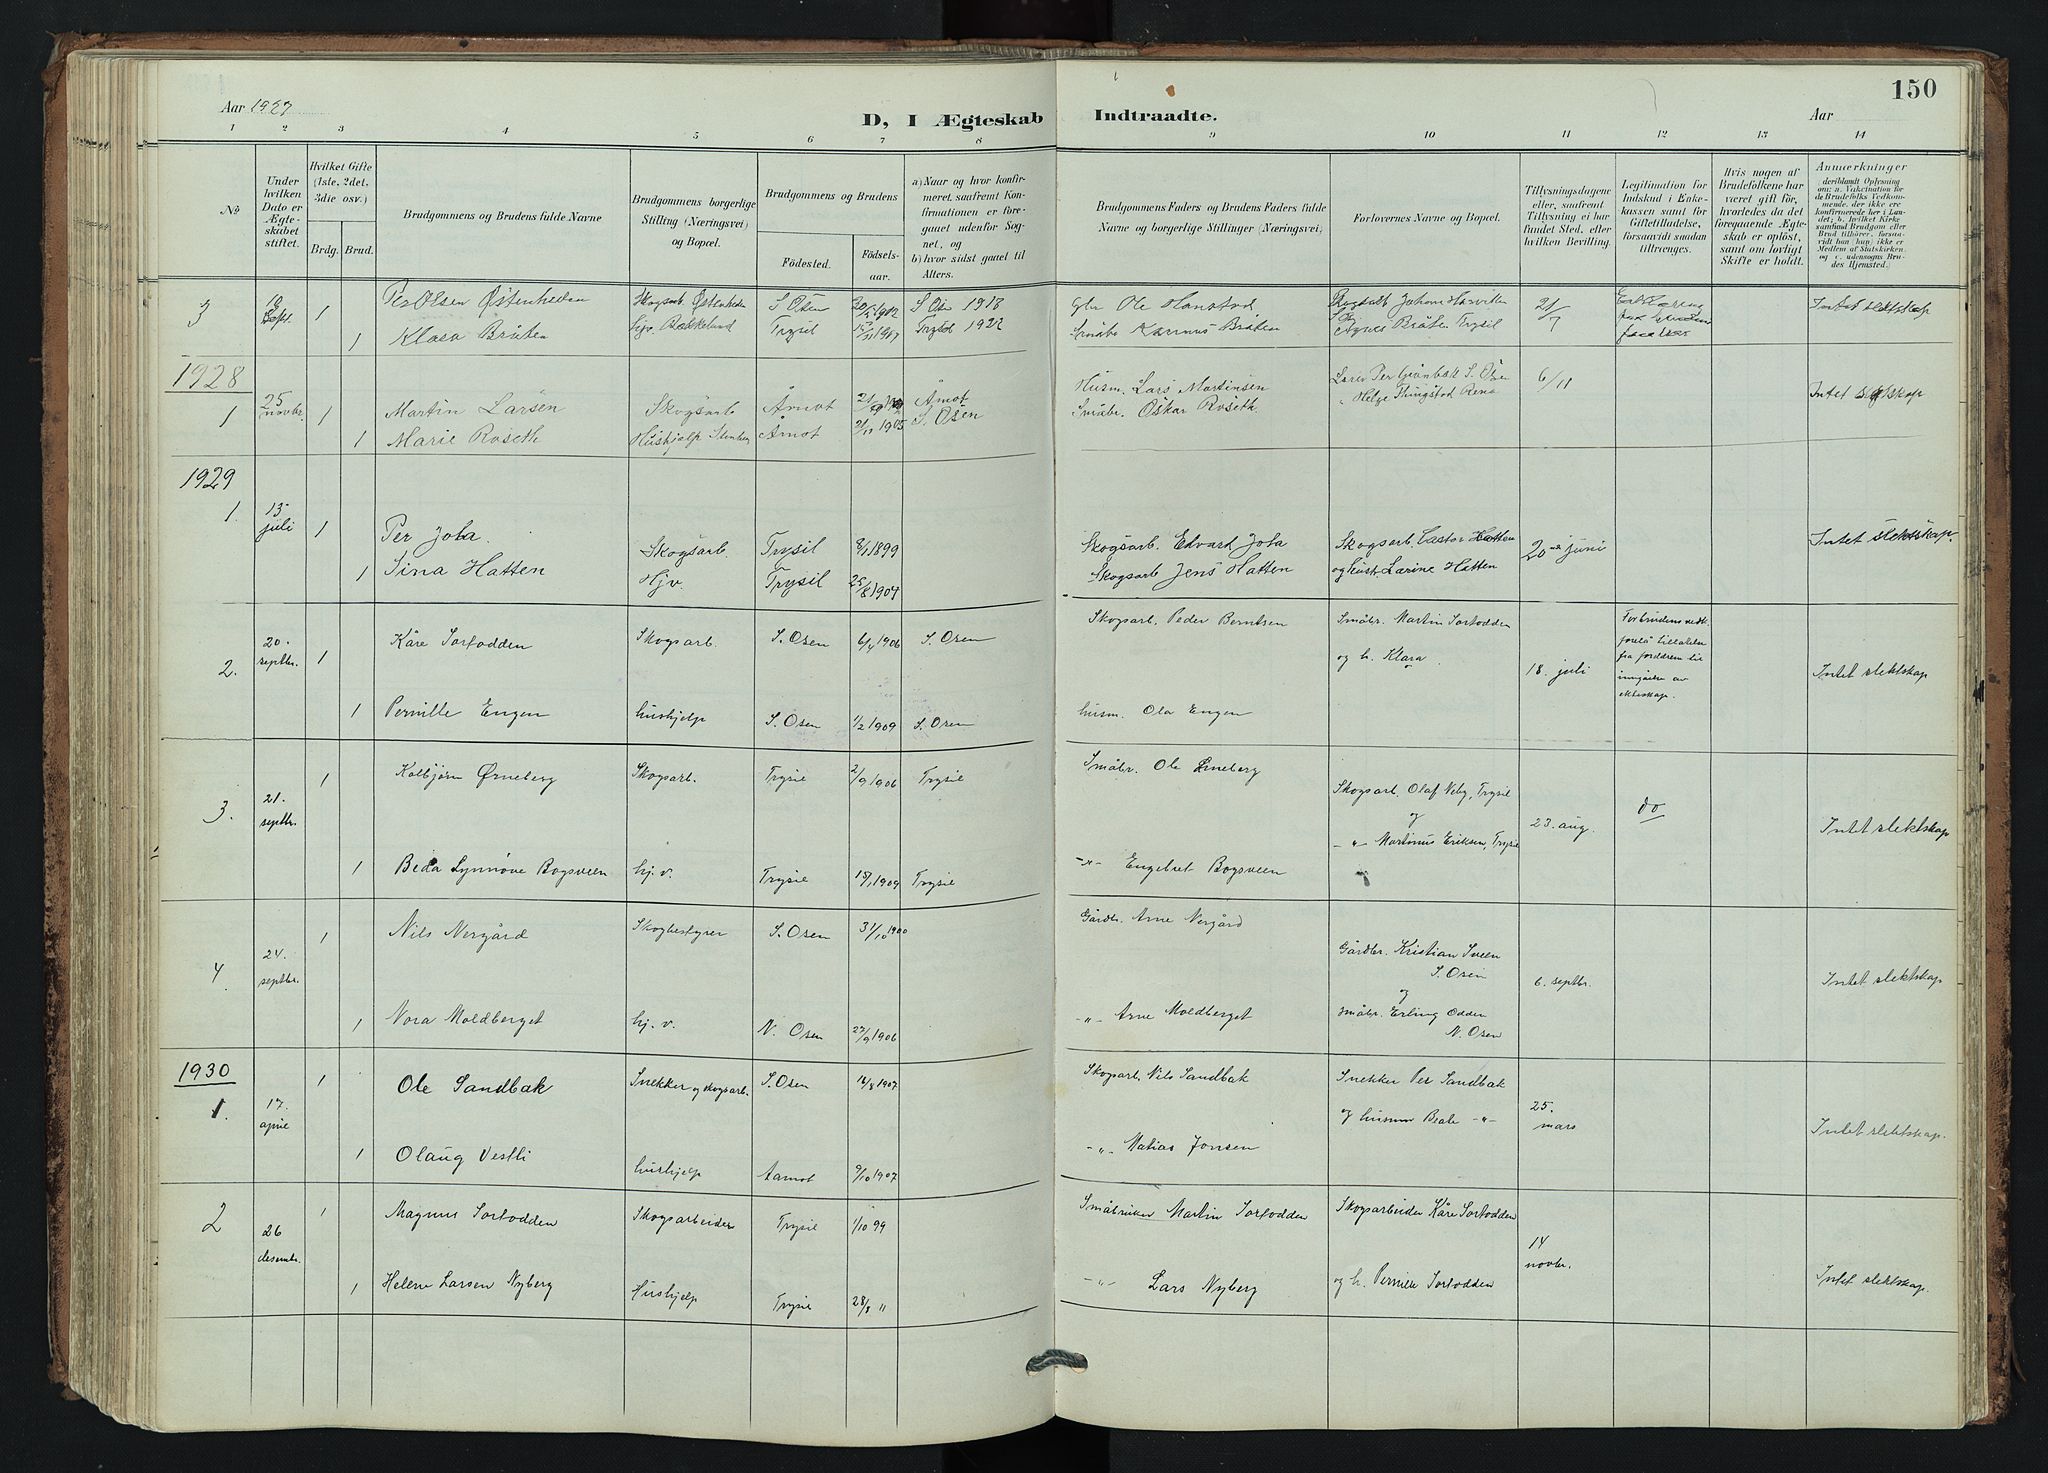 150
Aar 1927
D, I Ægteskab Indtraadte.
Aar
1 2 3 4 5 6 7 8 9 10 11 12 13 14
No
Under hvilken Dato er Ægteskabet stiftet.
Hvilket Gifte (1ste, 2det, 3die osv.)
Brdg. Brud.
Brudgommens og Brudens fulde Navne
Brudgommens borgerlige Stilling (Næringsvei) og Bopæl.
Brudgommens og Brudens
Fødested.
Fødselsaar.
a) Naar og hvor konfirmeret, saafremt Konfirmationen er foregaaet udenfor Sognet, og
b) hvor sidst gaaet til Alters.
Brudgommens Faders og Brudens Faders fulde Navne og borgerlige Stillinger (Næringsvei)
Forlovernes Navne og Bopæl.
Tillysningsdagene eller, saafremt Tillysning ei har fundet Sted, efter hvilken Bevilling.
Legitimation for Indskud i Enkekassen samt for Giftetilladelse, forsaavidt saadan tiltrænges.
Hvis nogen af Brudefolkene har været gift før, hvorledes da det foregaaende Ægteskab er opløst, samt om lovligt Skifte er holdt.
Anmerkninger
(deriblandt Oplysning om: a. Vakcination for de Brudefolks Vedkommende, der ikke ere konfirmerede her i Landet; b. hvilket Kirkesamfund Brudgom eller Brud tilhører, forsaavidt han (hun) ikke er Medlem af Statskirken, og c. udensogns Brudes Hjemsted.)
3 Sept. 1 Per Olsen Østenheden Skogsarb. Østenheden S. Osen 1902 S. Osen 1918 Ole Hanstad 21/7 Intet slektskap
1 Klara Bråten hjv. Bækkelund Trysil 1907 Trysil 1922 Småbr. Karinus Bråten Agnes Bråten Trysil
1928
1 25 novbr. 1 Martin Larsen Skogsarb Åmot Åmot Husm. Lars Martinsen Lærer Per Grønbæk S. Osen 6/11 Intet slektskap
1 Marie Roseth Hushjelp Stenberg Åmot 2/11 1905 S. Osen Småbr. Oskar Roseth Helge Ringstad Rena
1929
1. 13 juli 1 Per Jota. Skogsarb. Trysil 8/1 1899 Skogsarb. Edvard Jota Skogsarb. Castor Hatten 20de juni Intet slektskap.
1 Sina Hatten Hjv. Trysil 25/8 1904 Skogsarb Jens Hatten og hust. Lærine Hatten
2. 20. septbr. 1 Kåre Sortodden Skogsarb. S. Osen 6/4 1906 S. Osen Skogsarb. Peder Berntsen Småbr. Martin Sortodden og h. Klara 18. juli For brudens vedk. foreld. tillatelse fra foreldrene til inngåelse av ekteskap. Intet slektskap
1 Pernille Engen hushjelp S. Osen 1/2 1909 S. Osen husm. Ola Engen
3. 21. septbr. 1 Kolbjørn Ørneberg Skogsarb. Trysil 2/9 1906 Trysil Småbr. Ole Lineberg Skogsarb. Olaf Neby, Trysil 23. aug. do Intet slektskap
og
1 Beda Synnøve Bogsveen hj. v. Trysil 15/1 1909 Trysil -"- Engebret Bogsveen -"- Martinus Eriksen, Trysil
4. 24. septbr. 1 Nils Nergård Skogbestyrer S. Osen 31/10 1900 Gårdbr. Arne Nergård Gårdbr. Kristian Sveen S. Osen 6. septbr. Intet slektskap
og
1 Nora Moldberget hj. v. N. Osen 27/9 1906 -"- Arne Moldberget småbr. Erling Odden N. Osen
1930
1. 17. april 1 Ole Sandbak Snekker og skogsarb. S. Osen 16/8 1907 Skogsarb. Nils Sandbak Snekker Per Sandbak 25. mars Intet slektskap.
1 Olaug Vestli hushjelp Aamot 9/10 1907 -"- Matias Jonsen og hustru Beate -"-
2 26 desembr. 1 Magnus Sortodden Skogsarbeider Trysil 1/10 99 Småbruker Martin Sortodden Skogsarbeider Kåre Sortodden 14 novbr. Intet slektskap.
1 Helene Larsen Nyberg Hushjelp Trysil 28/8 " -"- Lars Nyberg og h. Pernille Sortodden